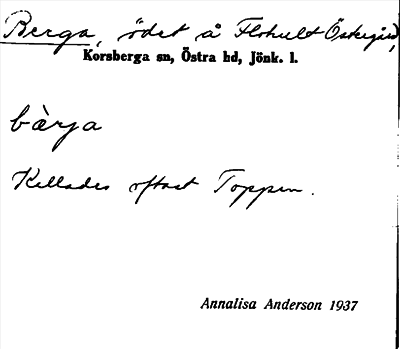 Berga, ödet å Flohult Östergård,
Korsberga sn, Östra hd, Jönk. l.
bàrja
Kallades oftast Toppen.
Annalisa Anderson 1937